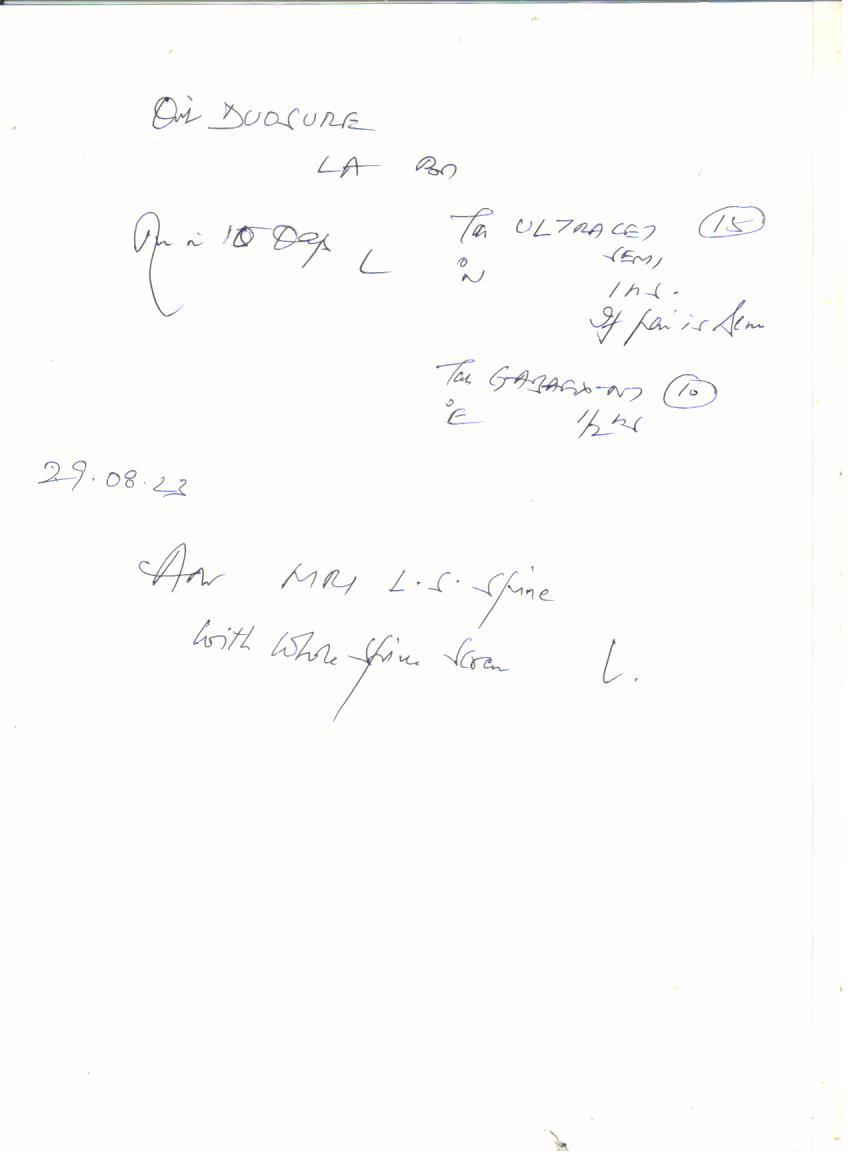 Oint DUOSURE
LA BD
in 10 Days
Tab ULTRACET 15
SEMI
1 hs.
If pain is Severe
Tab GABAFX-NT 10
1/2 hs
29.08.23
Adv MRI L.S. Spine
With Whole Spine Screen